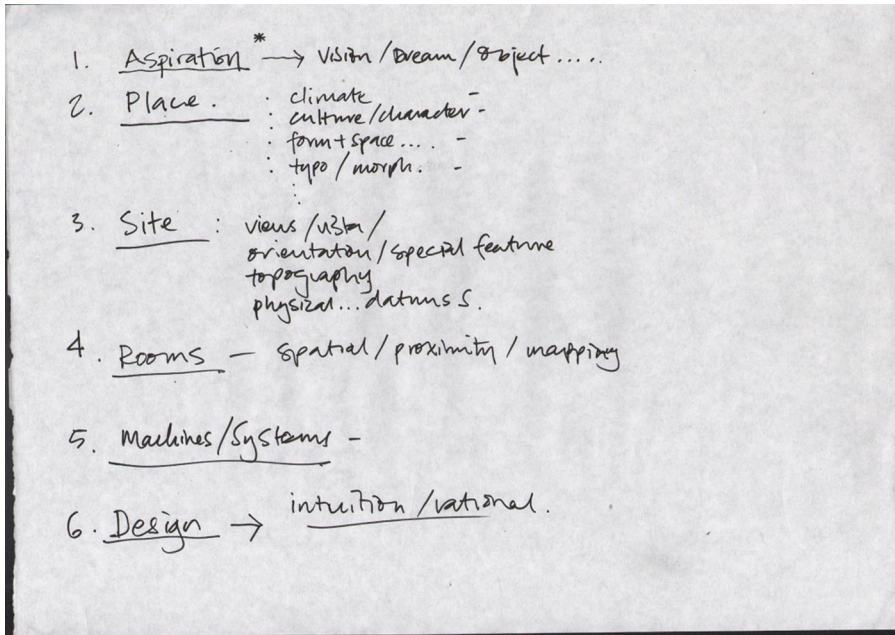 1. Aspiration * → Vision / Dream / Object .....
2. Place . : climate -
: culture/character -
: form + space .... -
: typo / morph. -
:
3. Site : views / vista /
orientation / special feature
topography
physical ... datums
4. Rooms - spatial / proximity / mapping
5. Machines/Systems -
6. Design → intuition / rational.